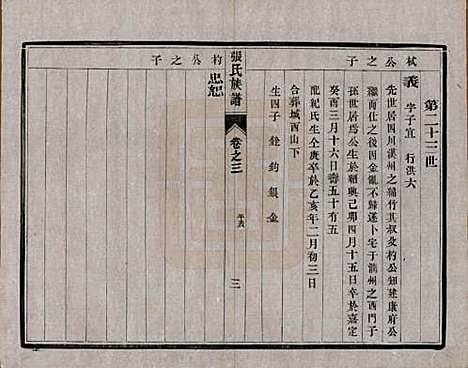 第二十三世
栻公之子
義 字子宜 行洪大
先世居四川漢州之綿竹其叔父杓公知建康府公
繼南仕之因金亂不歸遂卜宅于滿州之西門子
孫世居焉公生於紹興己卯四月十五日卒於嘉定
癸酉三月十六日壽五十有五
配紀氏生 庚 卒於乙亥年二月初三日
合葬城西山下
生四子 銓 鈞 銀 金
張氏族譜
卷之三
三
杓公之子
忠恕